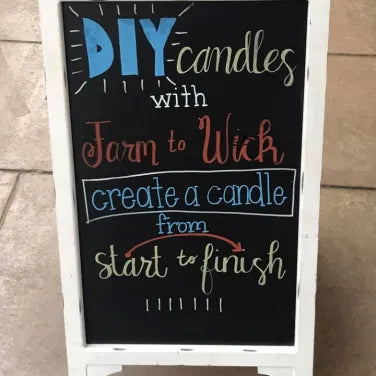 DIY candles
with
Farm to Wick
create a candle
from
start to finish